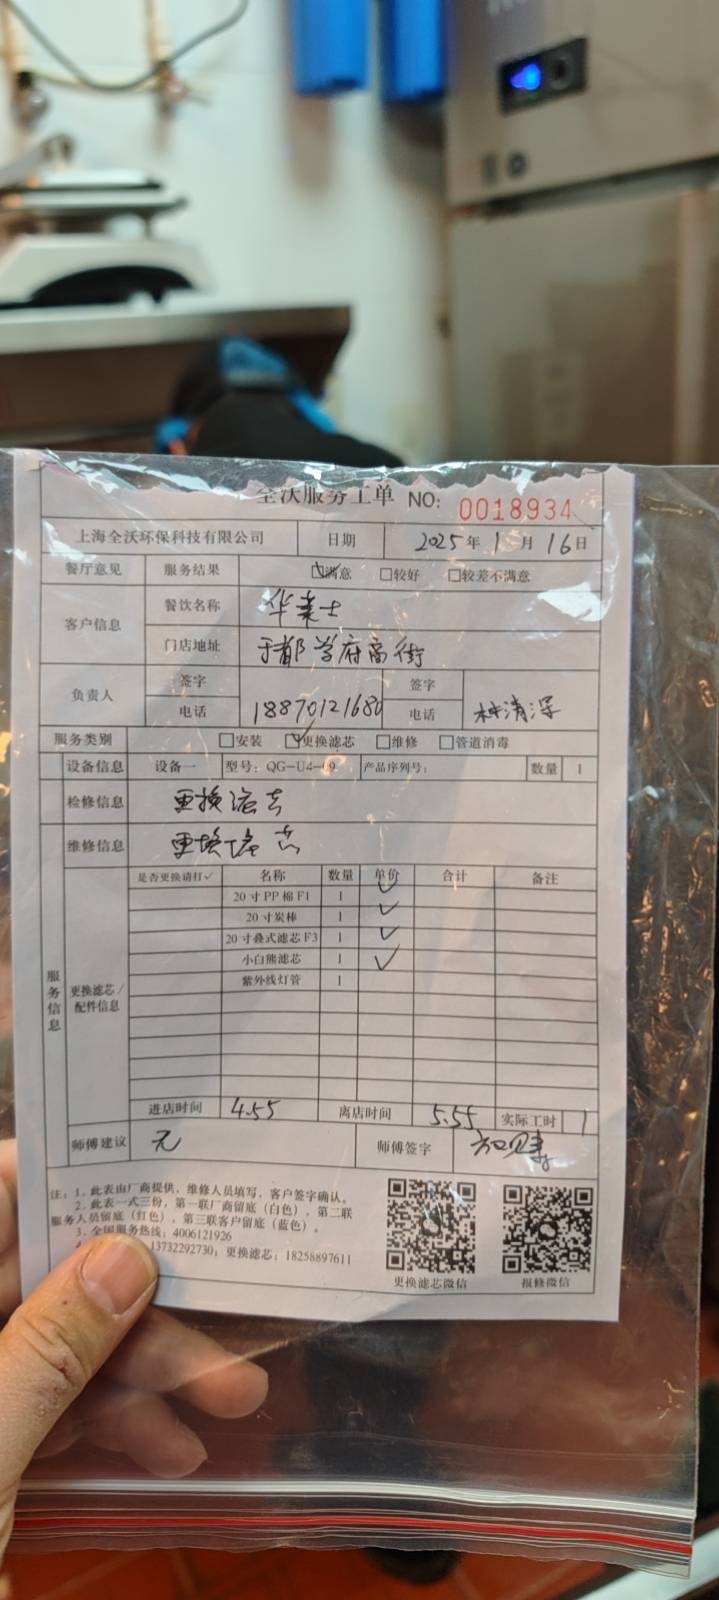 全沃服务工单 NO: 0018934
上海全沃环保科技有限公司 日期 2025年1月16日
餐厅意见 服务结果 ☑满意 □较好 □较差不满意
客户信息 餐饮名称 华莱士
门店地址 于都学府商街
负责人 签字 签字
电话 18870121680 电话 林清深
服务类别 □安装 ☑更换滤芯 □维修 □管道消毒
设备信息 设备一 型号: QG-U4-09 产品序列号: 数量 1
检修信息 更换滤芯
维修信息 更换滤芯
服务信息
更换滤芯/配件信息
是否更换请打✓ 名称 数量 单价 合计 备注
20寸PP棉F1 1 ✓
20寸炭棒 1 ✓
20寸叠式滤芯F3 1 ✓
小白熊滤芯 1 ✓
紫外线灯管 1
进店时间 4.55 离店时间 5.55 实际工时 1
师傅建议 无 师傅签字
注: 1. 此表由厂商提供, 维修人员填写, 客户签字确认。
2. 此表一式三份, 第一联厂商留底(白色), 第二联
服务人员留底(红色), 第三联客户留底(蓝色)。
3. 全国服务热线: 4006121926
13732292730; 更换滤芯: 18258897611
更换滤芯微信 报修微信